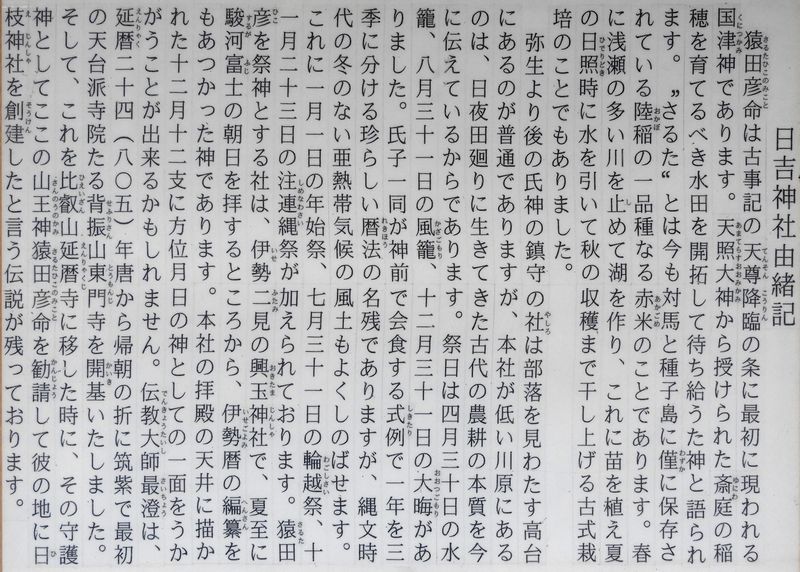 日吉神社由緒記
猿田彦命は古事記の天尊降臨の条に最初に現われる
国津神であります。天照大神から授けられた斎庭の稲
穂を育てるべき水田を開拓して待ち給うた神と語られ
ます。〝さるた〟とは今も対馬と種子島に僅に保存さ
れている陸稲の一品種なる赤米のことであります。春
に浅瀬の多い川を止めて湖を作り、これに苗を植え夏
の日照時に水を引いて秋の収穫まで干し上げる古式栽
培のことでもありました。
弥生より後の氏神の鎮守の社は部落を見わたす高台
にあるのが普通でありますが、本社が低い川原にある
のは、日夜田廻りに生きてきた古代の農耕の本質を今
に伝えているからであります。祭日は四月三十日の水
籠、八月三十一日の風籠、十二月三十一日の大晦があ
りました。氏子一同が神前で会食する式例で一年を三
季に分ける珍らしい暦法の名残でありますが、縄文時
代の冬のない亜熱帯気候の風土もよくしのばせます。
これに一月一日の年始祭、七月三十一日の輪越祭、十
一月二十三日の注連縄祭が加えられております。猿田
彦を祭神とする社は、伊勢二見の興玉神社で、夏至に
駿河富士の朝日を拝するところから、伊勢暦の編纂を
もあつかった神であります。本社の拝殿の天井に描か
れた十二月十二支に方位月日の神としての一面をうか
がうことが出来るかもしれません。伝教大師最澄は、
延暦二十四（八〇五）年唐から帰朝の折に筑紫で最初
の天台派寺院たる背振山東門寺を開基いたしました。
そして、これを比叡山延暦寺に移した時に、その守護
神としてここの山王神猿田彦命を勧請して彼の地に日
枝神社を創建したと言う伝説が残っております。